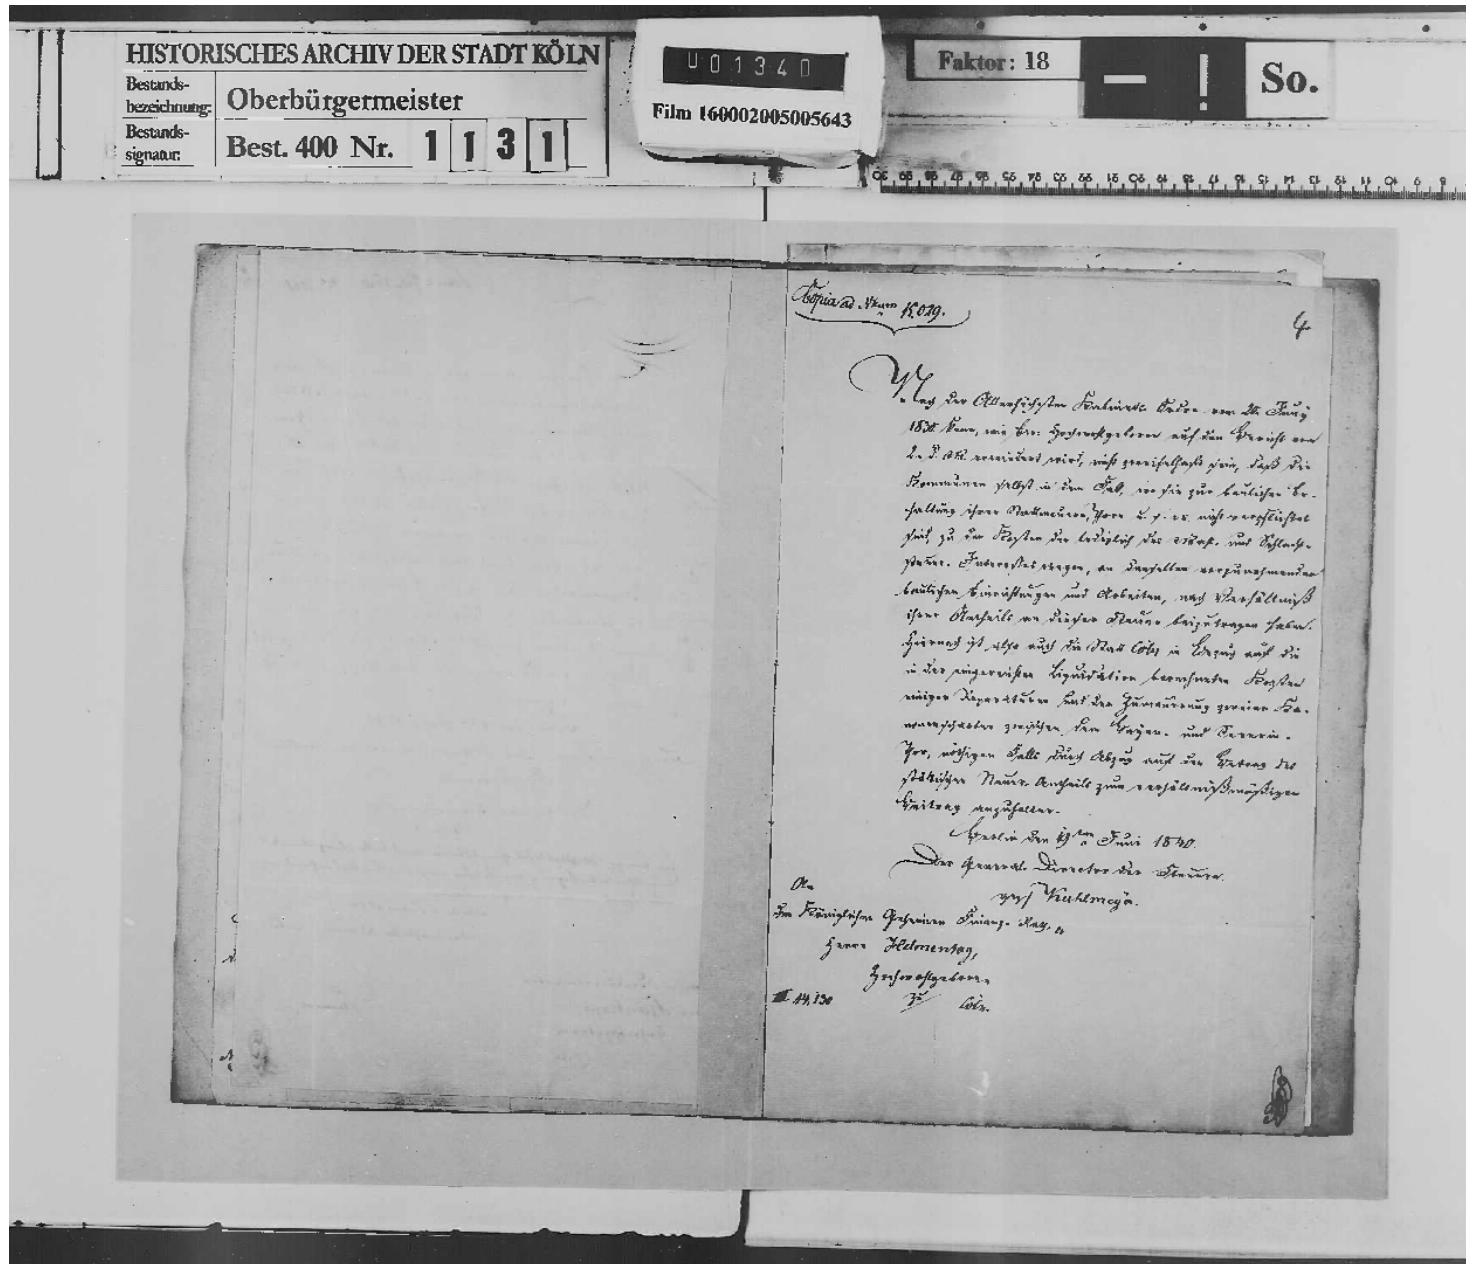 HISTORISCHES ARCHIV DER STADT KÖLN
Bestands-
bezeichnung: Oberbürgermeister
Bestands-
signatur: Best. 400 Nr. 1 1 3 1
U 0 1 3 4 0
Film 160002005005643
Faktor: 18
So.
Copia ad Num 15,029.
4
Nach der Allerhöchsten Kabinets Ordre vom 20. Juny
kann, wie Ew. Hochwohlgeboren auf den Bericht vom
2. d. Mts. erwiedert wird, nicht zweifelhaft sein, daß die
Kommunen selbst in dem Fall, wo sie zur baulichen Er-
haltung ihrer Stadtmauern, Thore u. s. w. nicht verpflichtet
sind, zu den Kosten der lediglich des Mahl- und Schlacht-
steuer-Interesses wegen, an denselben vorzunehmenden
baulichen Einrichtungen und Arbeiten, nach Verhältniß
ihres Antheils an dieser Steuer beizutragen haben.
Hiernach ist also auch die Stadt Cöln in Bezug auf die
in der eingereichten Liquidation berechneten Kosten
einiger Reparaturen und der Zumauerung zweier Ka-
nonenscharten zwischen dem Bayen- und Severin-
Thor, nöthigen Falls durch Abzug auf den Betrag des
städtischen Steuer-Antheils zum verhältnißmäßigen
Beitrag anzuhalten.
Berlin den 19ten Juni 1840.
Der General-Director der Steuern.
gez. Kuhlmeyer.
An
den Königlichen Geheimen Finanz-Rath
Herrn Helmentag,
Hochwohlgeboren
zu Cöln.
III 14,130